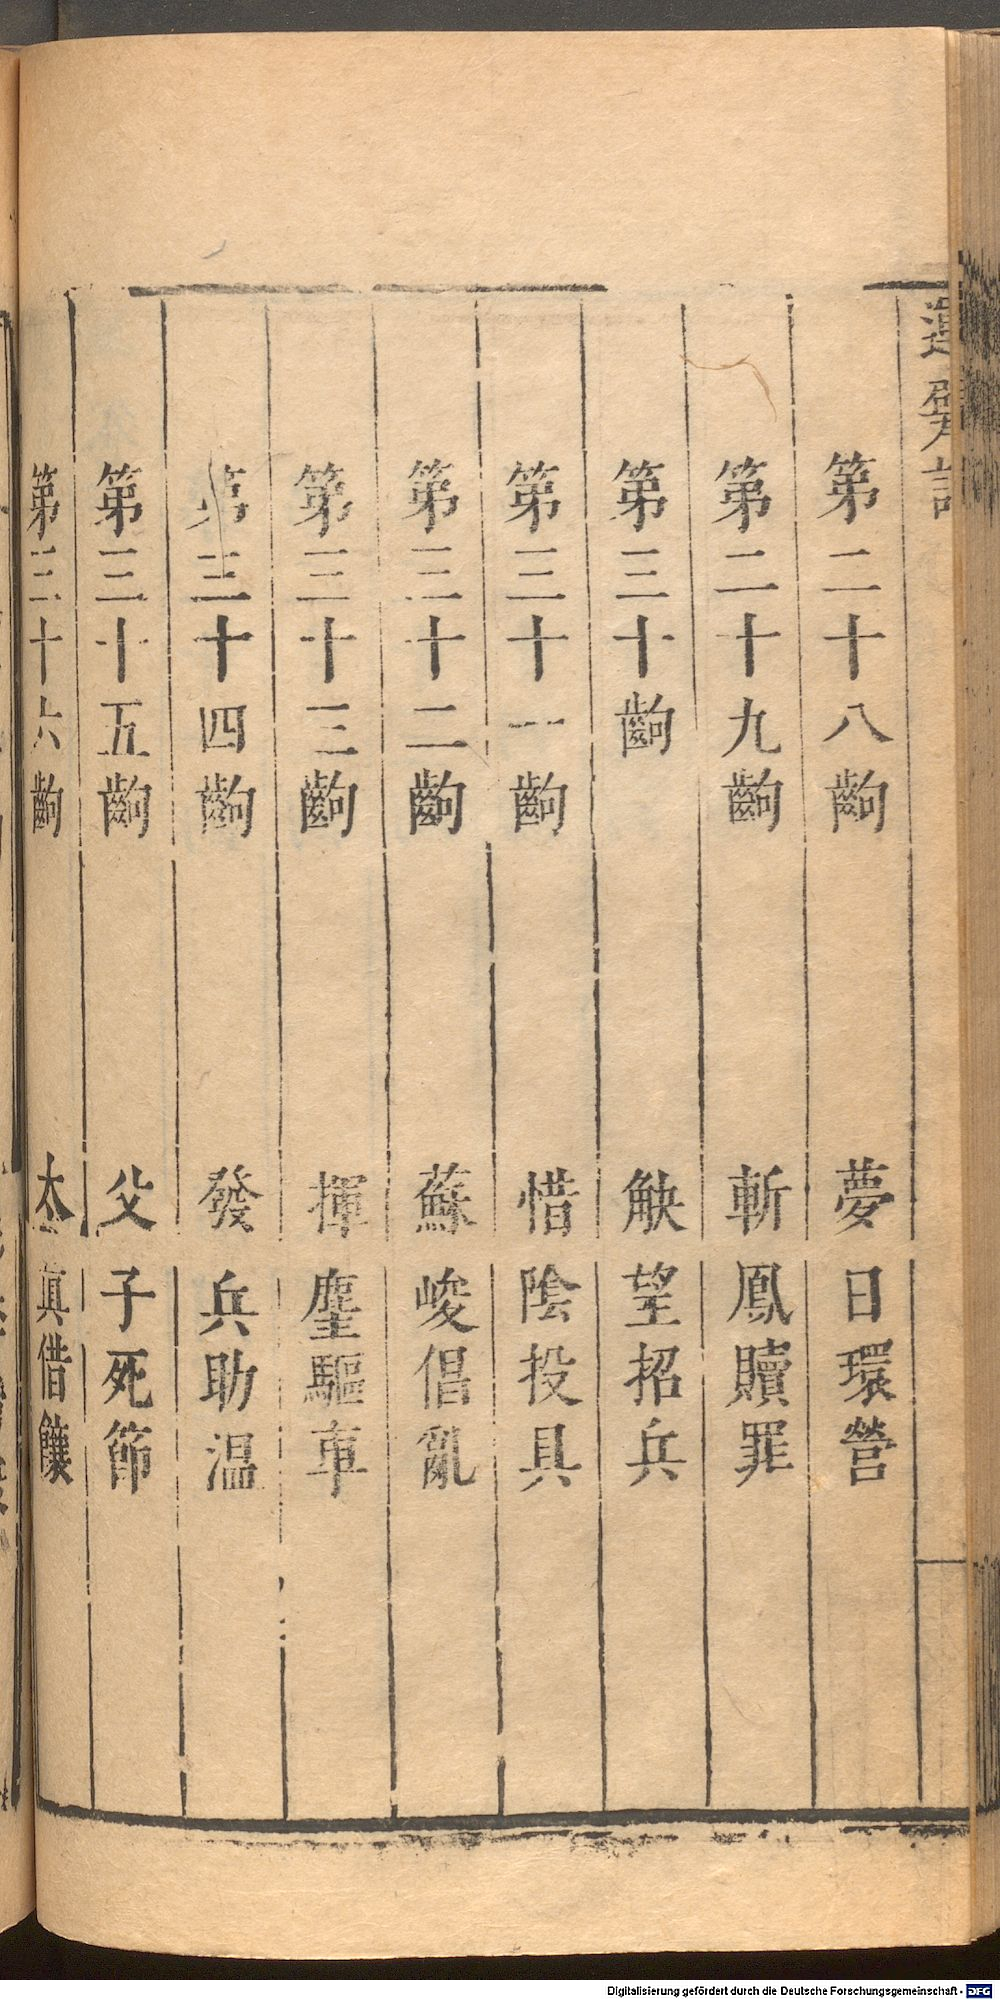 運甓記
第二十八齣 夢日環營
第二十九齣 斬鳳贖罪
第三十齣 觖望招兵
第三十一齣 惜陰投具
第三十二齣 蘇峻倡亂
第三十三齣 揮麈驅車
第三十四齣 發兵助温
第三十五齣 父子死節
第三十六齣 太真借饟
Digitalisierung gefördert durch die Deutsche Forschungsgemeinschaft - DFG